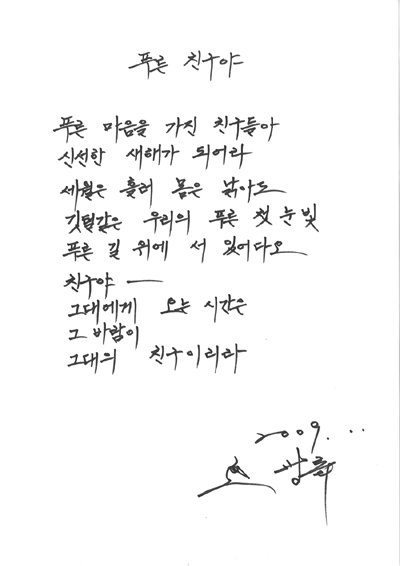 푸른 친구야
푸른 마음을 가진 친구들아
신선한 새해가 되어라
세월은 흘러 몸은 낡아도
깃털같은 우리의 푸른 첫 눈빛
푸른 길 위에 서 있어다오
친구야 —
그대에게 오는 시간은
그 바람이
그대의 친구이리라
2009. ..